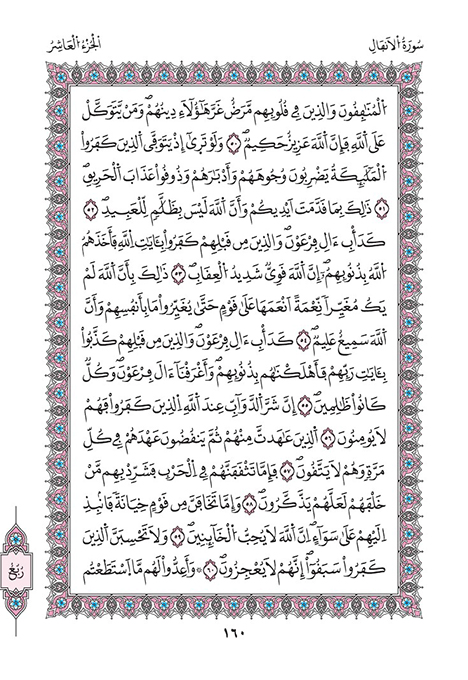 سُورَةُ الْأَنفَالِ
الْجُزْءُ الْعَاشِرُ
اُ۬لْمُنَٰفِقُونَ وَالذِينَ فِے قُلُوبِهِم مَّرَضٌ غَرَّ هَٰٓؤُلَآءِ دِينُهُمْۖ وَمَنْ يَّتَوَكَّلْ
عَلَى اَ۬للَّهِ فَإِنَّ اَ۬للَّهَ عَزِيزٌ حَكِيمٞۖ ٥٠ وَلَوْ تَر۪ىٰٓ إِذْ يَتَوَفَّى اَ۬لذِينَ كَفَرُواْ
اُ۬لْمَلَٰٓئِكَةُ يَضْرِبُونَ وُجُوهَهُمْ وَأَدْبَٰرَهُمْ وَذُوقُواْ عَذَابَ اَ۬لْحَرِيقِۖ
٥١ ذَٰلِكَ بِمَا قَدَّمَتَ اَيْدِيكُمْ وَأَنَّ اَ۬للَّهَ لَيْسَ بِظَلَّٰمٖ لِّلْعَبِيدِۖ ٥٢
كَدَأْبِ ءَالِ فِرْعَوْنَۖ وَالذِينَ مِن قَبْلِهِمْ كَفَرُواْ بِـَٔايَٰتِ اِ۬للَّهِ فَأَخَذَهُمُ
اُ۬للَّهُ بِذُنُوبِهِمُۥٓۖ إِنَّ اَ۬للَّهَ قَوِيّٞ شَدِيدُ اُ۬لْعِقَابِۖ ٥٣ ذَٰلِكَ بِأَنَّ اَ۬للَّهَ لَمْ
يَكُ مُغَيِّراٗ نِّعْمَةً اَنْعَمَهَا عَلَىٰ قَوْمٍ حَتَّىٰ يُغَيِّرُواْ مَا بِأَنفُسِهِمْ وَأَنَّ
اَ۬للَّهَ سَمِيعٌ عَلِيمٞۖ ٥٤ كَدَأْبِ ءَالِ فِرْعَوْنَۖ وَالذِينَ مِن قَبْلِهِمْ كَذَّبُواْ
بِـَٔايَٰتِ رَبِّهِمْ فَأَهْلَكْنَٰهُم بِذُنُوبِهِمْۖ وَأَغْرَقْنَآ ءَالَ فِرْعَوْنَۖ وَكُلّٞ
كَانُواْ ظَٰلِمِينَۖ ٥٥ إِنَّ شَرَّ اَ۬لدَّوَآبِّ عِندَ اَ۬للَّهِ اِ۬لذِينَ كَفَرُواْ فَهُمْ
لَا يُومِنُونَۖ ٥٦ اَ۬لذِينَ عَٰهَدتَّ مِنْهُمْ ثُمَّ يَنقُضُونَ عَهْدَهُمْ فِے كُلِّ
مَرَّةٖ وَهُمْ لَا يَتَّقُونَۖ ٥٧ فَإِمَّا تَثْقَفَنَّهُمْ فِے اِ۬لْحَرْبِ فَشَرِّدْ بِهِم مَّنْ
خَلْفَهُمْ لَعَلَّهُمْ يَذَّكَّرُونَۖ ٥٨ وَإِمَّا تَخَافَنَّ مِن قَوْمٍ خِيَانَةٗ فَانۢبِذِ
اِلَيْهِمْ عَلَىٰ سَوَآءٍۖ اِنَّ اَ۬للَّهَ لَا يُحِبُّ اُ۬لْخَآئِنِينَۖ ٥٩ وَلَا تَحْسِبَنَّ اَ۬لذِينَ
كَفَرُواْ سَبَقُوٓاْۖ إِنَّهُمْ لَا يُعْجِزُونَۖ ٦٠ ۞ وَأَعِدُّواْ لَهُم مَّا اَ۪سْتَطَعْتُم
رُبُعُ
١٦٠